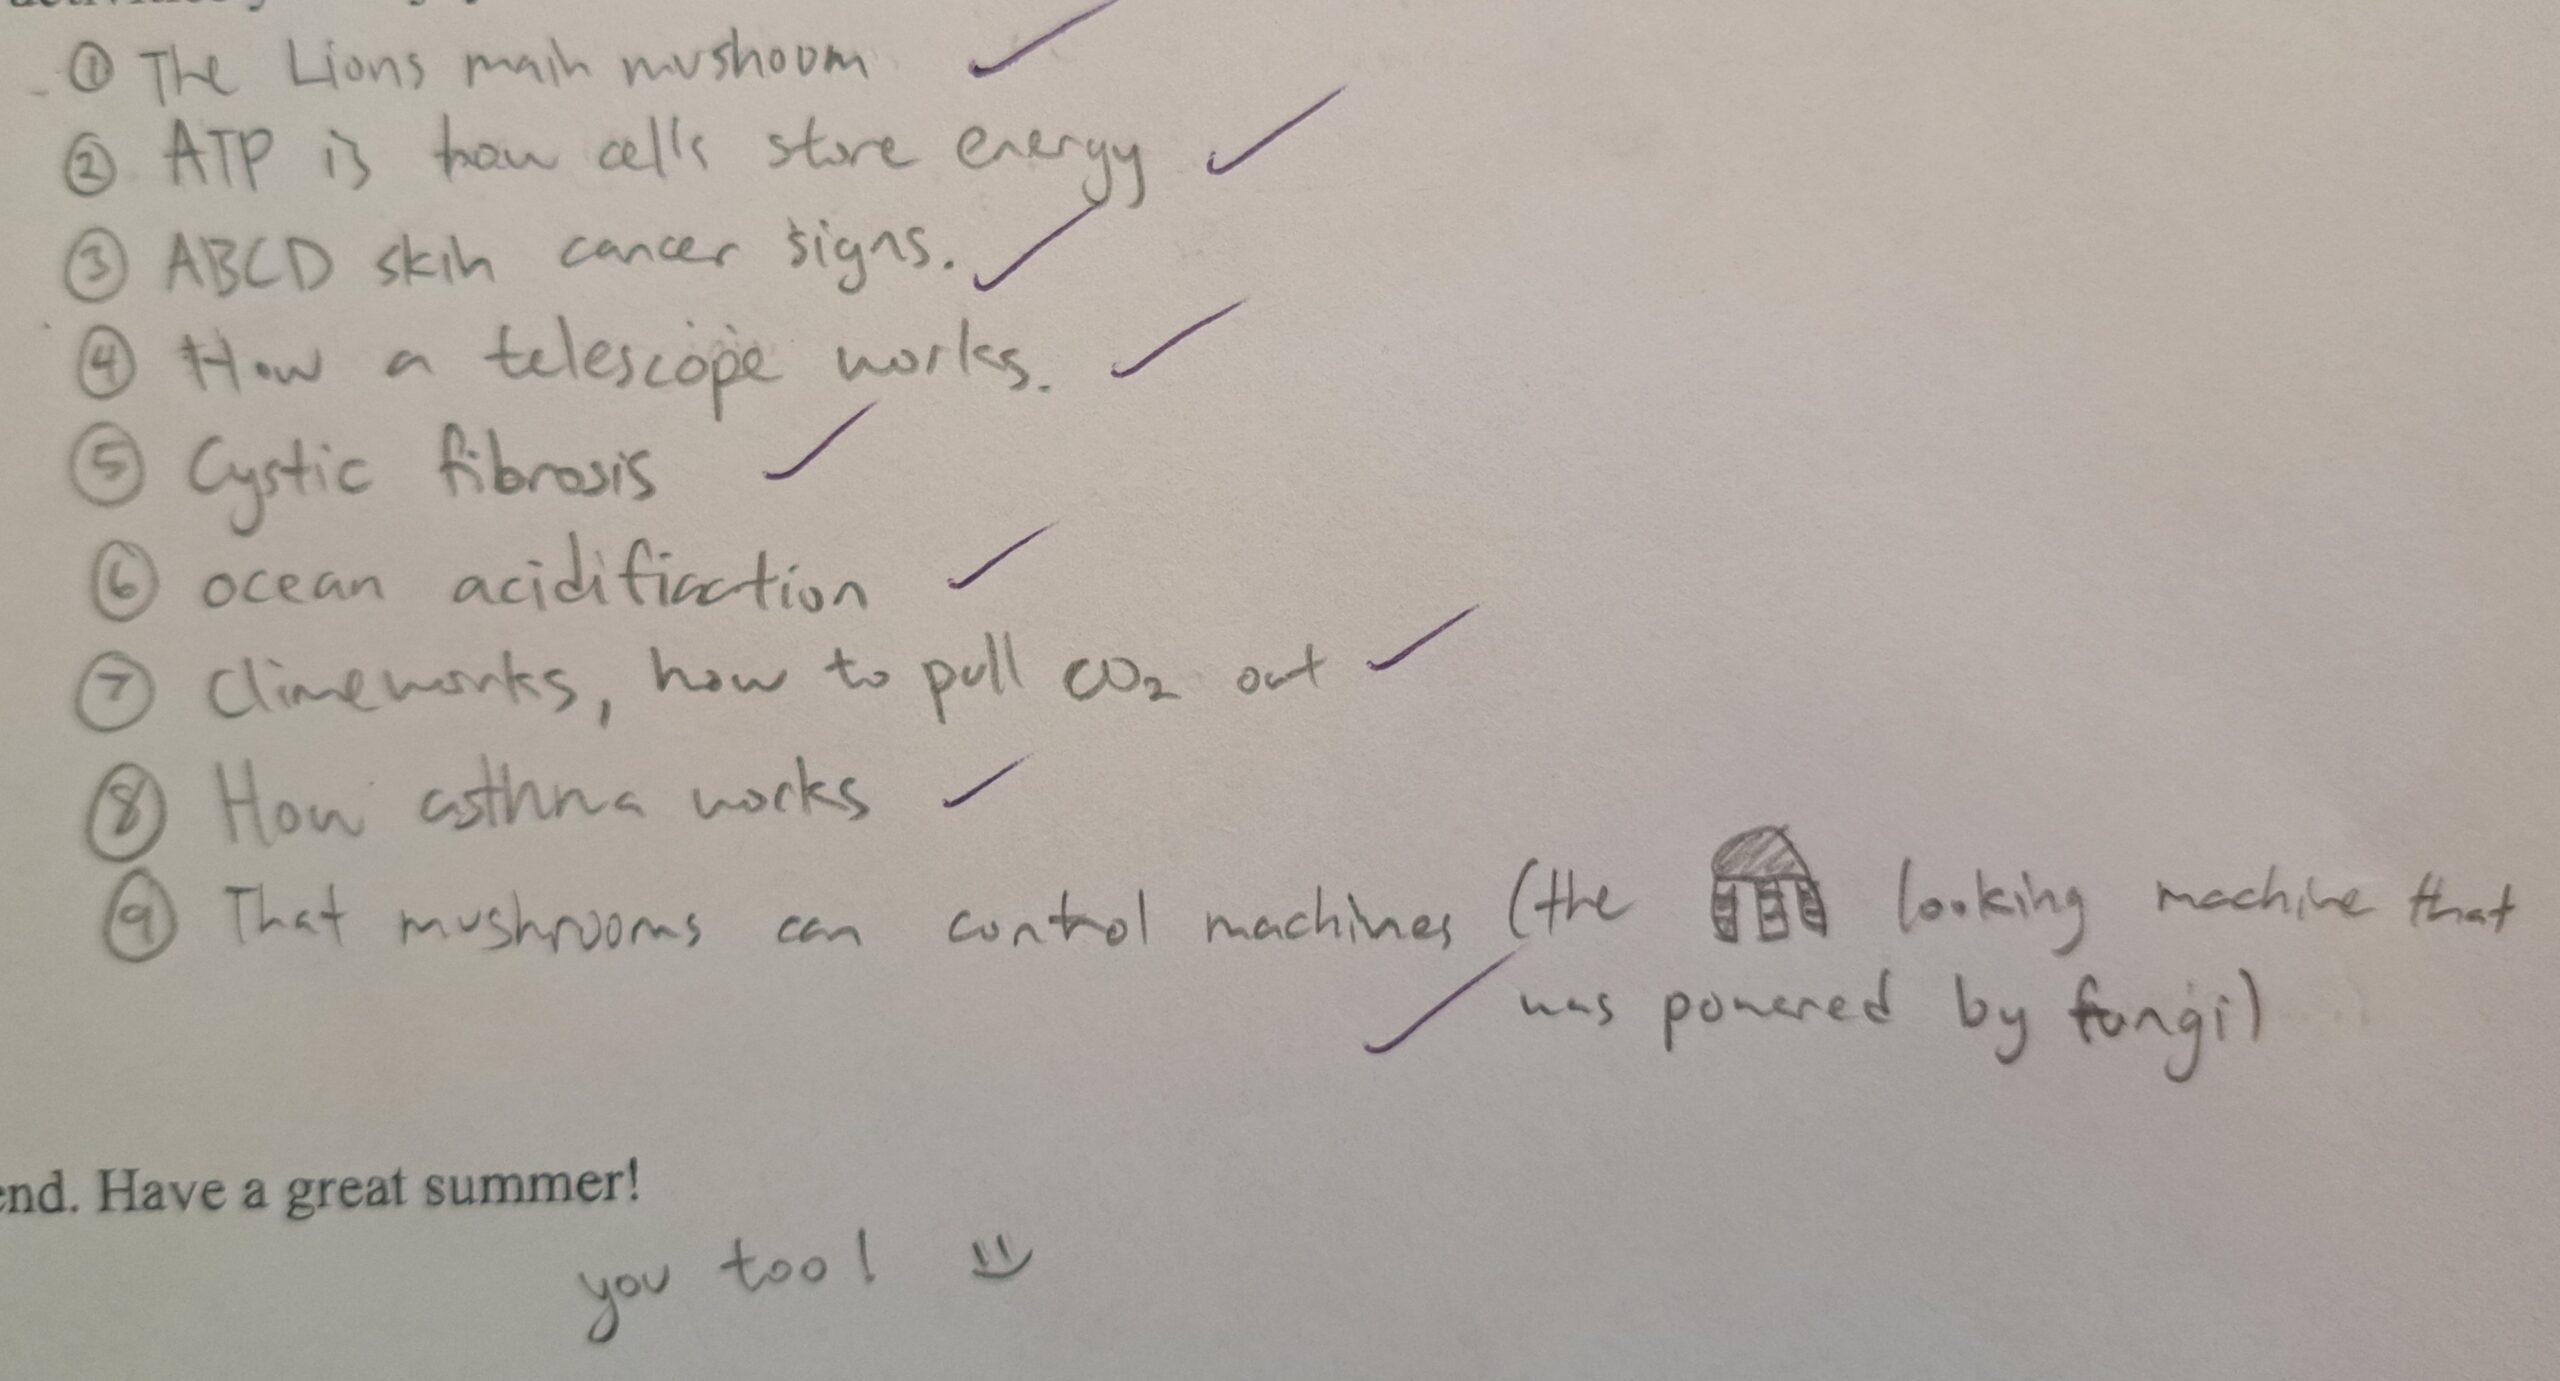 ① The Lions main mushoom
② ATP is how cells store energy
③ ABCD skin cancer signs.
④ How a telescope works.
⑤ Cystic fibrosis
⑥ ocean acidification
⑦ Climeworks, how to pull CO₂ out
⑧ How asthma works
⑨ That mushrooms can control machines (the looking machine that
was powered by fungi)
end. Have a great summer!
you too!